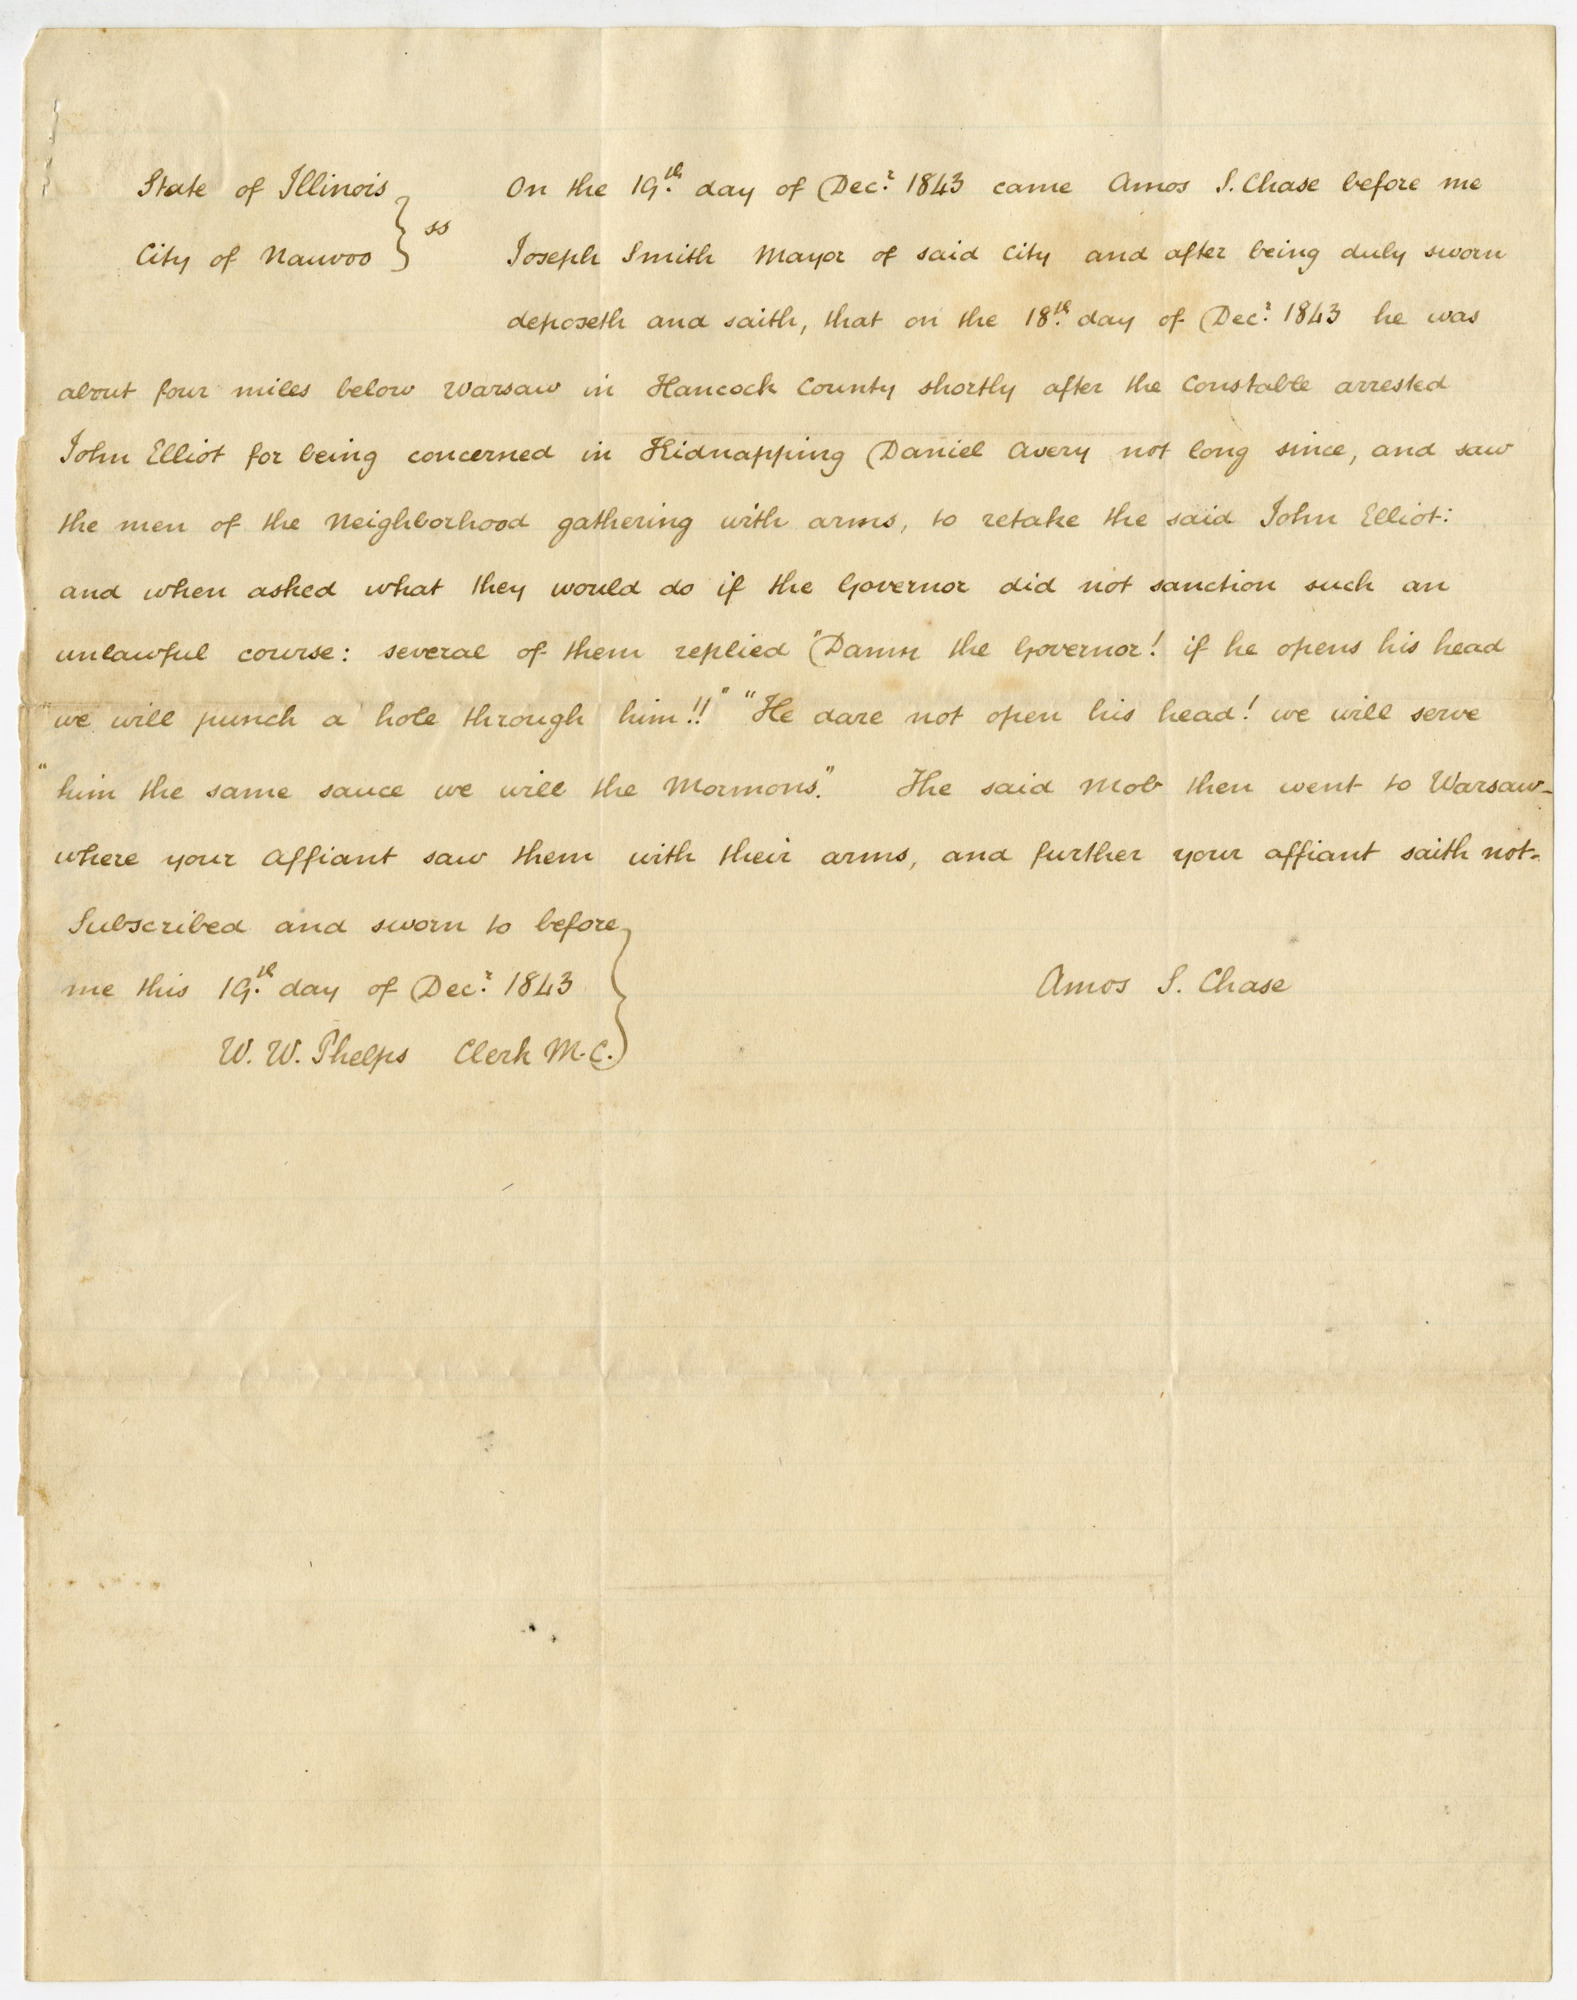 State of Illinois } ss On the 19th. day of Decr. 1843 came Amos S. Chase before me
City of Nauvoo } Joseph Smith Mayor of said City and after being duly sworn
deposeth and saith, that on the 18th. day of Decr. 1843 he was
about four miles below Warsaw in Hancock County shortly after the Constable arrested
John Elliot for being concerned in Kidnapping Daniel Avery not long since, and saw
the men of the Neighborhood gathering with arms, to retake the said John Elliot:
and when asked what they would do if the Governor did not sanction such an
unlawful course: several of them replied "Damn the Governor! if he opens his head
"we will punch a hole through him!!" "He dare not open his head! we will serve
"him the same sauce we will the Mormons." The said Mob then went to Warsaw-
where your Affiant saw them with their arms, and further your affiant saith not-
Subscribed and sworn to before }
me this 19th. day of Decr. 1843 } Amos S. Chase
W. W. Phelps Clerk M.C. }